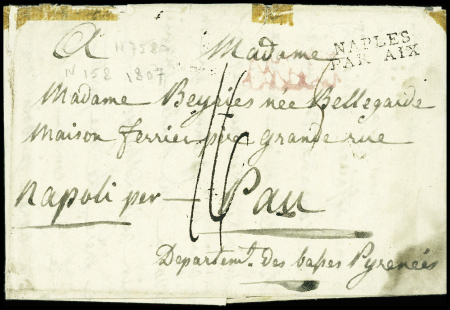 A Madame
NAPLES
PAR AIX
N 158 1807
Madame Beyries née Bellegarde
Maison ferrier père grande rue
Napoli per Pau
16
Departemt. des basses Pyrenées